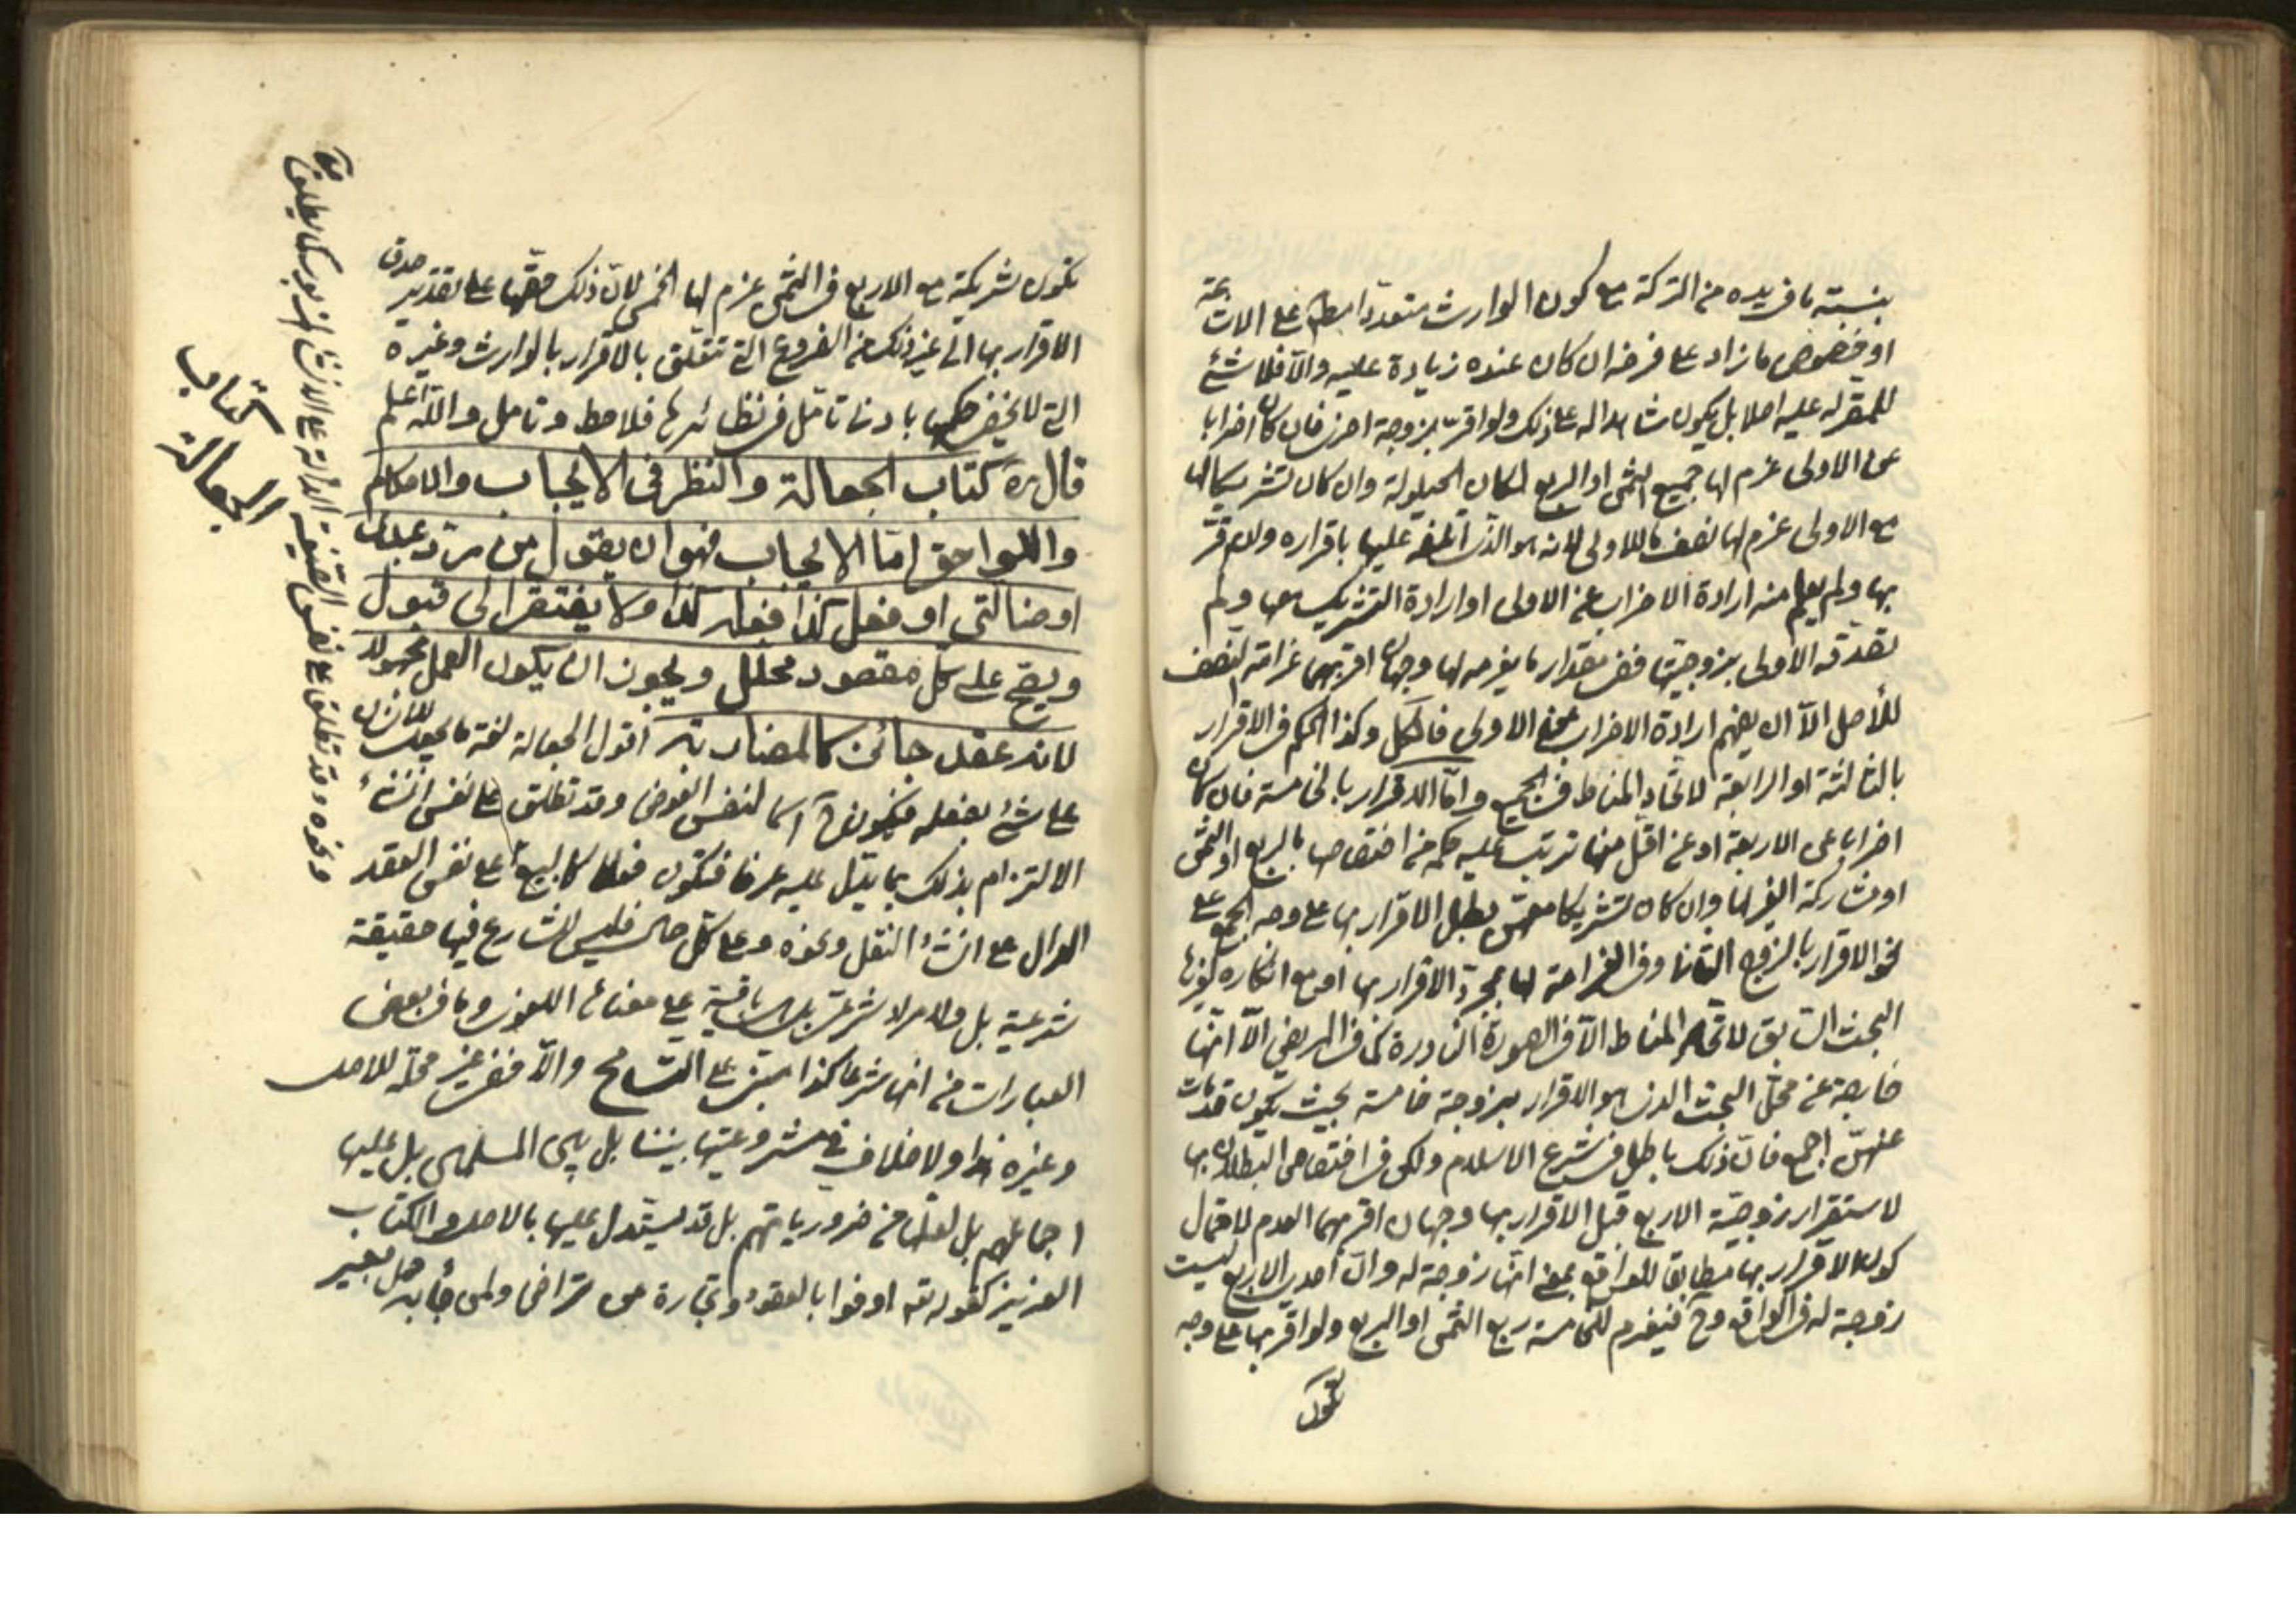 بنسبة ما في يده من التركة مع كون الوارث متعددا على الاشاعة
او خصوص ما زاد على فرضه ان كان عنده زيادة عليه والا فلا شئ
للمقر له عليه اصلا بل يكون شاهدا له على ذلك ولو اقر بزوجة اخرى فان كان اضرابا
عن الاولى غرم لها جميع الثمن او الربع لمكان الحيلولة وان كان تشريكا لها
مع الاولى غرم لها نصف ما للاولى لانه هو الذي اتلفه عليها باقراره ولو اقر
بها ولم يعلم منه ارادة الاضراب عن الاولى او ارادة التشريك معها ولم
تصدقه الاولى بزوجيتها ففي مقدار ما يغرمه لها وجهان اقربهما غرامة النصف
للأصل الا ان يفهم ارادة الاضراب عن الاولى فالكل وكذا الحكم في الاقرار
بالثالثة او الرابعة لاتحاد المناط في الجميع واما الاقرار بالخامسة فان كان
اضرابا عن الاربعة او عن اقل منها ترتب عليه حكمه من اختصاصها بالربع او الثمن
او مشاركة الغير لها وان كان تشريكا معهن بطل الاقرار بها على وجه الجمع على
نحو الاقرار بالزوج الثاني وفي الغرامة لها بمجرد الاقرار بها او مع انكاره
البحث السابق لاتحاد المناط الا في الصورة النادرة كما في المريض الا انها
خارجة عن محل البحث الذي هو الاقرار بزوجة خامسة بحيث يكون قد مات
عنهن اجمع فان ذلك باطل في شرع الاسلام ولكن في اختصاص البطلان بها
لاستقرار زوجية الاربع قبل الاقرار بها وجهان اقربهما العدم لاحتمال
كون الاقرار بها مطابقا للواقع بمعنى انها زوجة له وان احدى الاربع ليست
زوجة له في الواقع وح فيغرم للخامسة ربع الثمن او الربع ولو اقر بها على وجه
تكون

تكون شريكة مع الاربع في الثمن غرم لها الخمس لان ذلك حقها على تقدير صدق
الاقرار بها الى غير ذلك من الفروع التي تتعلق بالاقرار بالوارث وغيره
التي لا يخفى حكمها بادنى تامل في نظائرها فلاحظ وتامل والله اعلم
قال ره كتاب الجعالة والنظر في الايجاب والاحكام
واللواحق اما الايجاب فهو ان يقول من رد عبدي
او ضالتي او فعل كذا فعله كذا ولا يفتقر الى قبول
ويصح على كل مقصود محلل ويجوز ان يكون العمل مجهولا
لانه عقد جائز كالمضاربة اقول الجعالة لغة ما يجعل للانسان
على شئ بفعله فيكون ح اسما لنفس العوض وقد تطلق على نفس انشاء
الالتزام بذلك بما يدل عليه عرفا فتكون فعلا كالبيع على نفس العقد
الدال على انشاء النقل ونحوه وعلى كل حال فليس للشارع فيها حقيقة
شرعية بل ولا مراد شرعي بل هي باقية على معناها اللغوي وما في بعض
العبارات من انها شرعا كذا مبني على التسامح والا فهي في غير محله للاصل
وغيره هذا ولا خلاف في مشروعيتها بيننا بل بين المسلمين بل عليها
اجماعهم بل لعلها من ضرورياتهم بل قد يستدل عليها بالاصل والكتاب
العزيز كقوله تع اوفوا بالعقود وتجارة عن تراض ولمن جاء به حمل بعير

كتاب
الجعالة